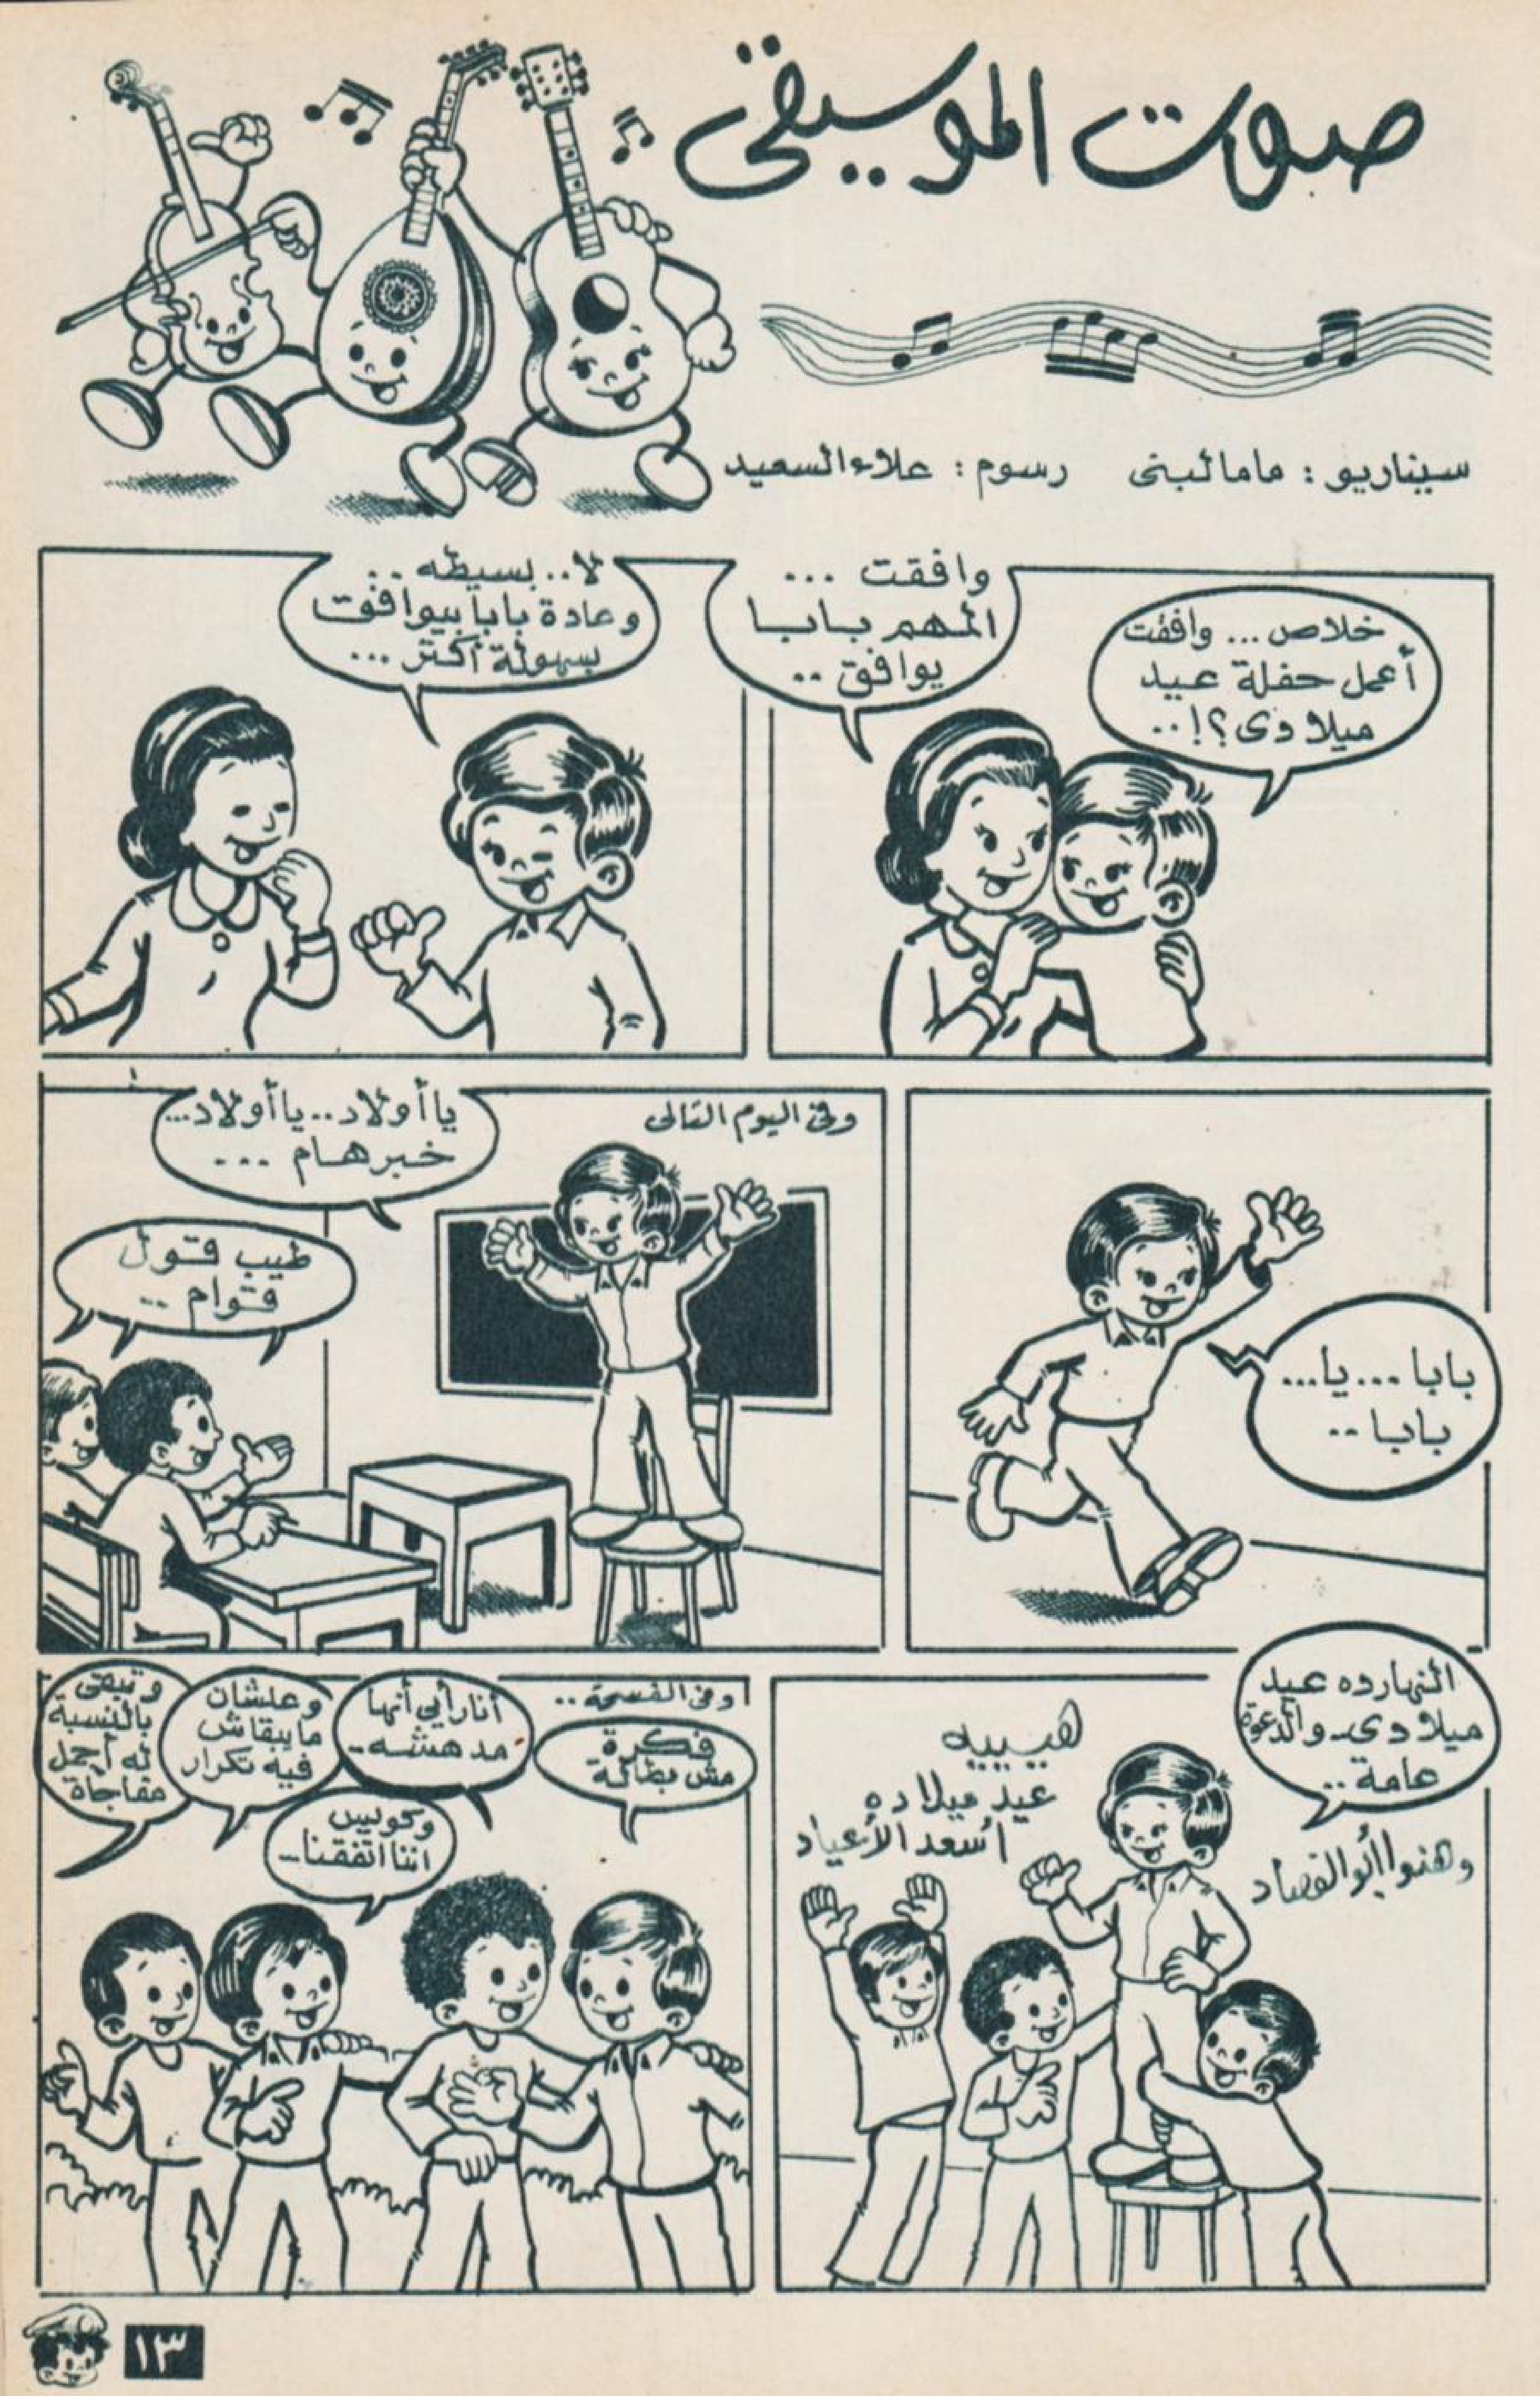 صوت الموسيقى
سيناريو : ماما لبنى رسوم : علاء السعيد
خلاص ... وافقت
أعمل حفلة عيد
ميلادى ؟! ..
وافقت ...
المهم بابا
يوافق ..
لا .. بسيطه ..
وعادة بابا بيوافق
بسهولة أكتر ...
بابا ... يا ...
بابا ..
وفى اليوم التالى
يا أولاد .. يا أولاد ...
خبر هام ...
طيب قول
قوام ..
النهارده عيد
ميلادى - والدعوة
عامة ..
هيبييه
عيد ميلاده
أسعد الأعياد
وهنوا أبو الفصاد
وفى الفسحة ..
فكرة
مش بطالة
أنا رأيى أنها
مدهشه -
وكويس
اننا اتفقنا -
وعلشان
مايبقاش
فيه تكرار
وتبقى
بالنسبة
له أجمل
مفاجأة
١٣